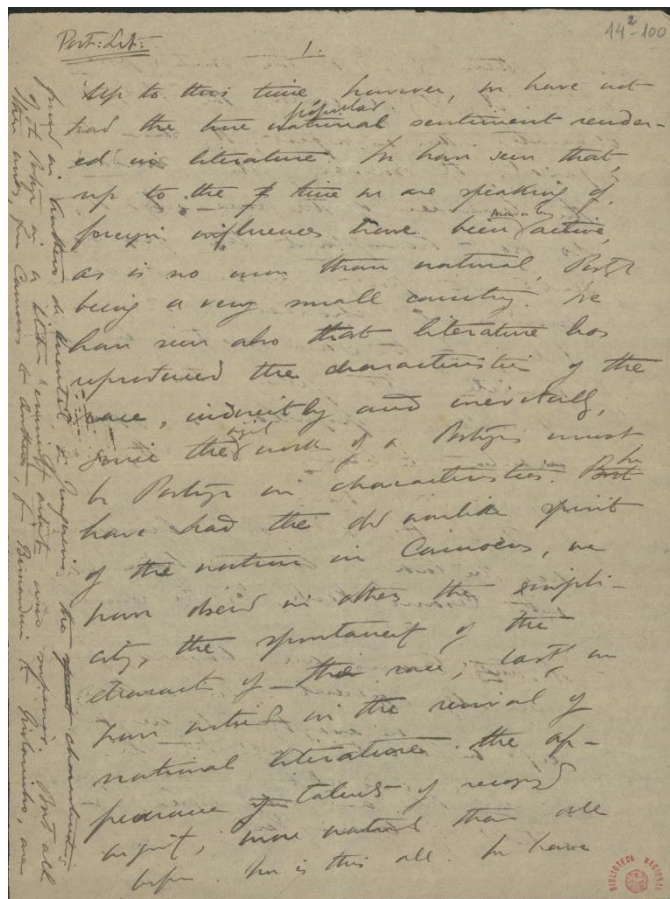 14²-100
Port: Lit:
1.
Up to this time, however, we have not
had the true national popular sentiment render-
ed in literature. We have seen that,
up to the time we are speaking of,
foreign influences have been mainly active,
as is no more than natural, Portgl
being a very small country. We
have seen also that literature has
reproduced the characteristics of the
race, indirectly and inevitably,
since the work of a Portgse must
be Portgse in characteristics. We
have had the old warlike spirit
of the nation in Camoens, we
have in others the simpli-
city, the spontaneity of the
character of the race; last, we
have in the revival of
national literature the ap-
pearance of talents of record
more natural than all
before. Nor is this all. We have
found in Anthero de Quental, in Junqueiro, the characteristics
of the artist was superior. But all
these men, from Camoens to Anthero, from Bernardim to Junqueiro, are
BIBLIOTECA NACIONAL